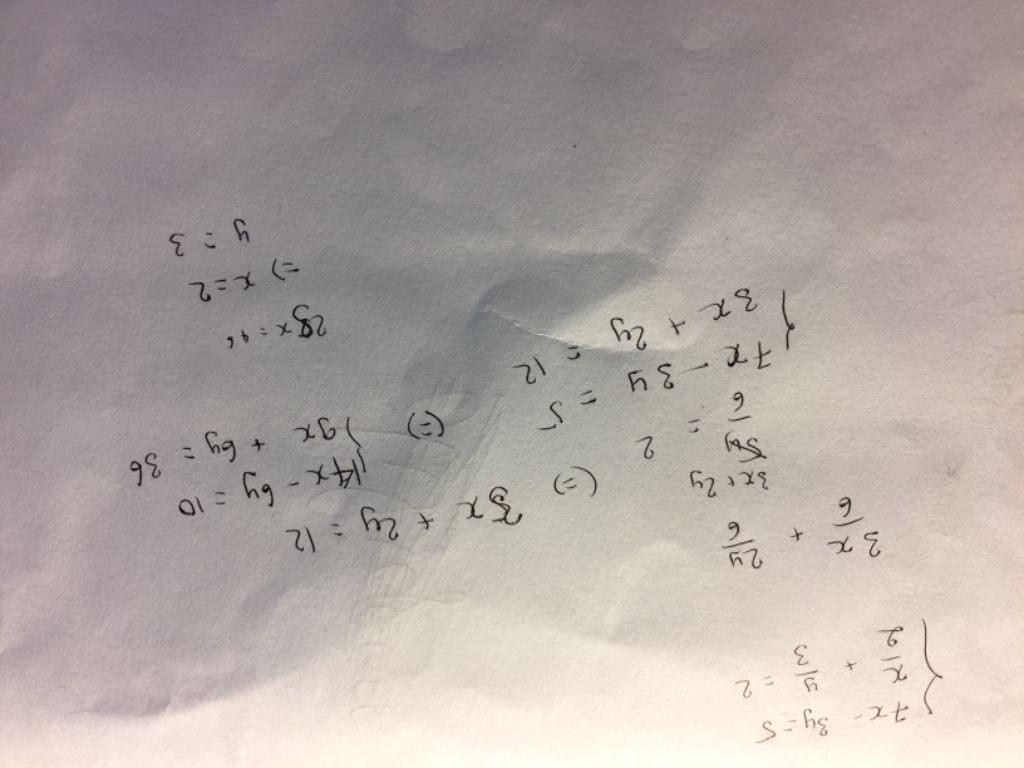 7x - 3y = 5
x/2 + y/3 = 2
3x/6 + 2y/6
(3x + 2y)/6 = 2 (=) 3x + 2y = 12
{ 7x - 3y = 5 (=) { 14x - 6y = 10
3x + 2y = 12 9x + 6y = 36
23x = 46
=) x = 2
y = 3